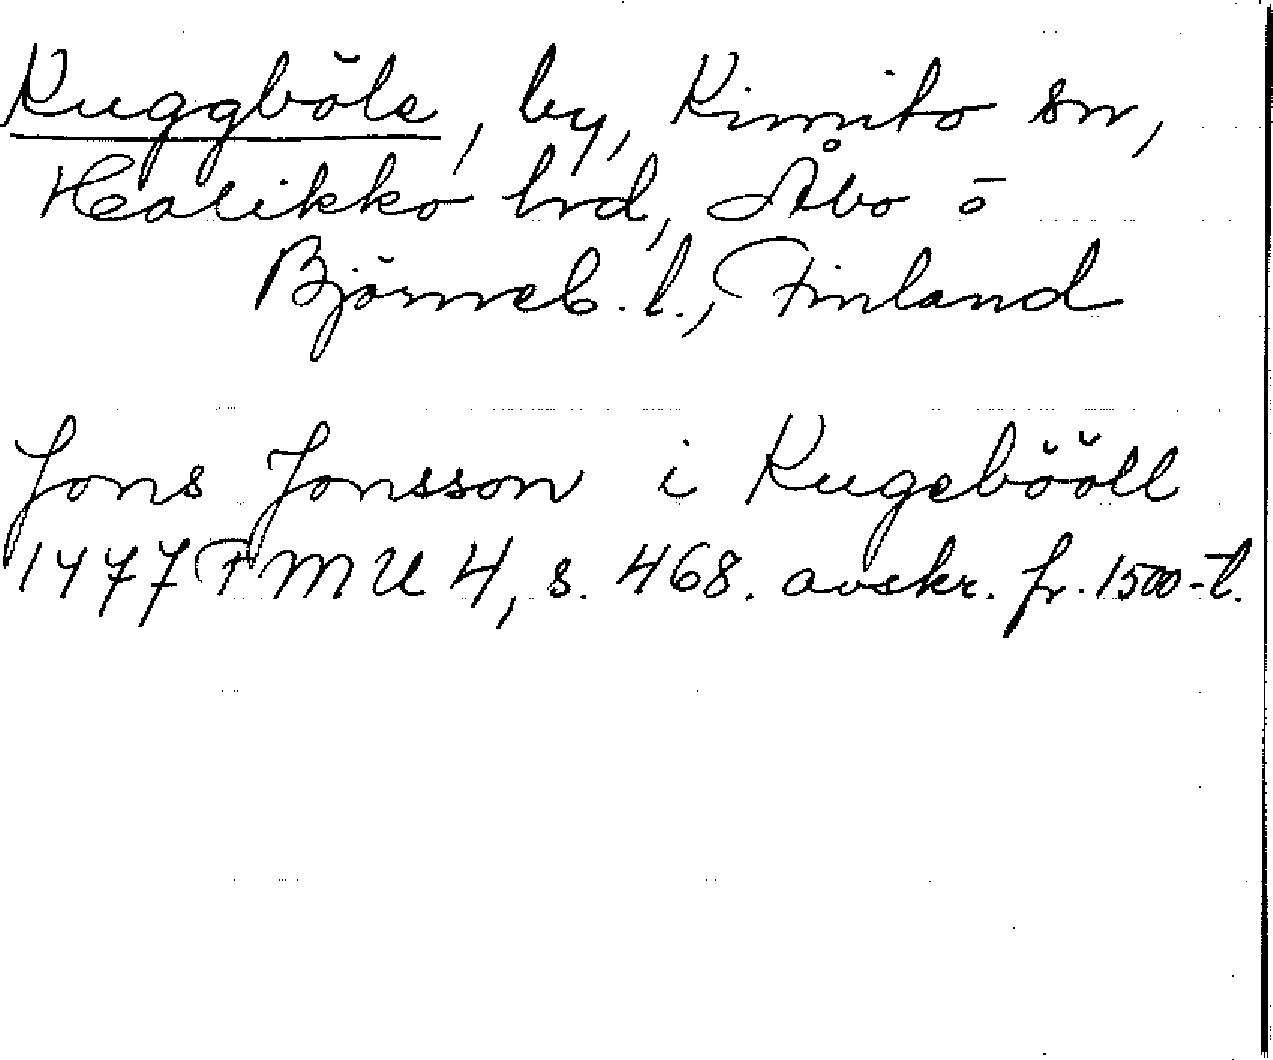 Ruggböle, by, Kimito sn,
Halikko hrd, Åbo o
Björneb. l., Finland
Jons Jonsson i Rugebööll
1477 FMU 4, s. 468. avskr. fr. 1500-t.